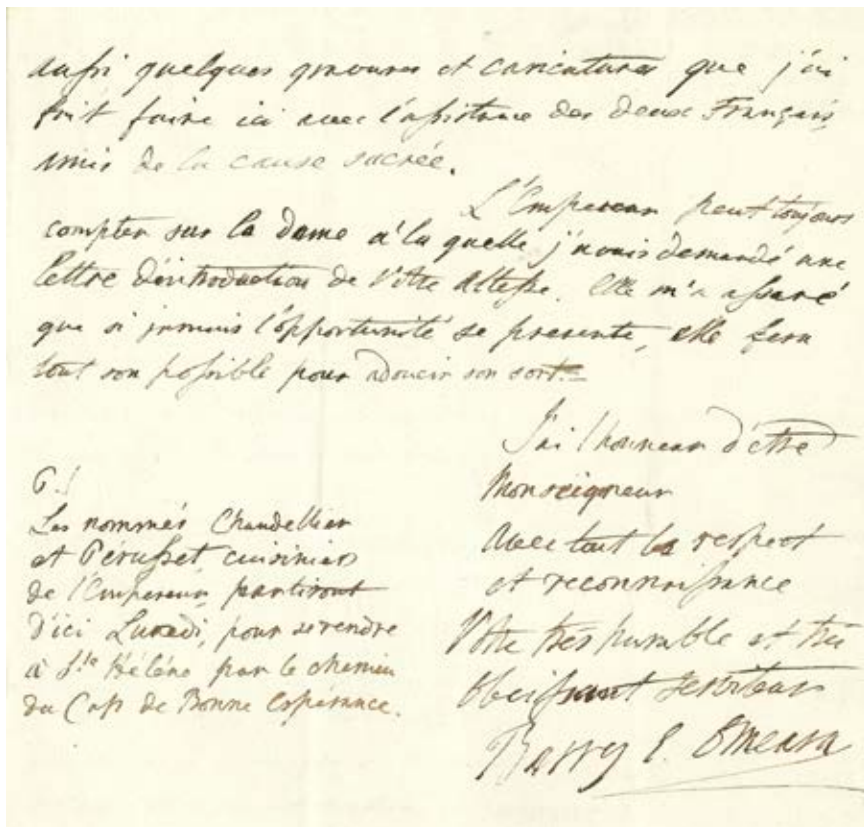 aussi quelques gravures et caricatures que j'ai
fait faire ici avec l'assistance des deux Français
amis de la cause sacrée.
L'Empereur peut toujours
compter sur la dame a la quelle j'avais demandé une
lettre d'introduction de Votre Altesse. Elle m'a assuré
que si jamais l'opportunité se presente, elle fera
tout son possible pour adoucir son sort.
J'ai l'honneur d'etre
Monseigneur
avec tout le respect
et reconnaissance
Votre très humble et très
obeissant serviteur
Barry E. OMeara
P.S
Les nommés Chandellier
et Pérusset, cuisiniers
de l'Empereur partiront
d'ici Lunedi, pour se rendre
à Ste Hélène par le chemin
du Cap de Bonne Espérance.